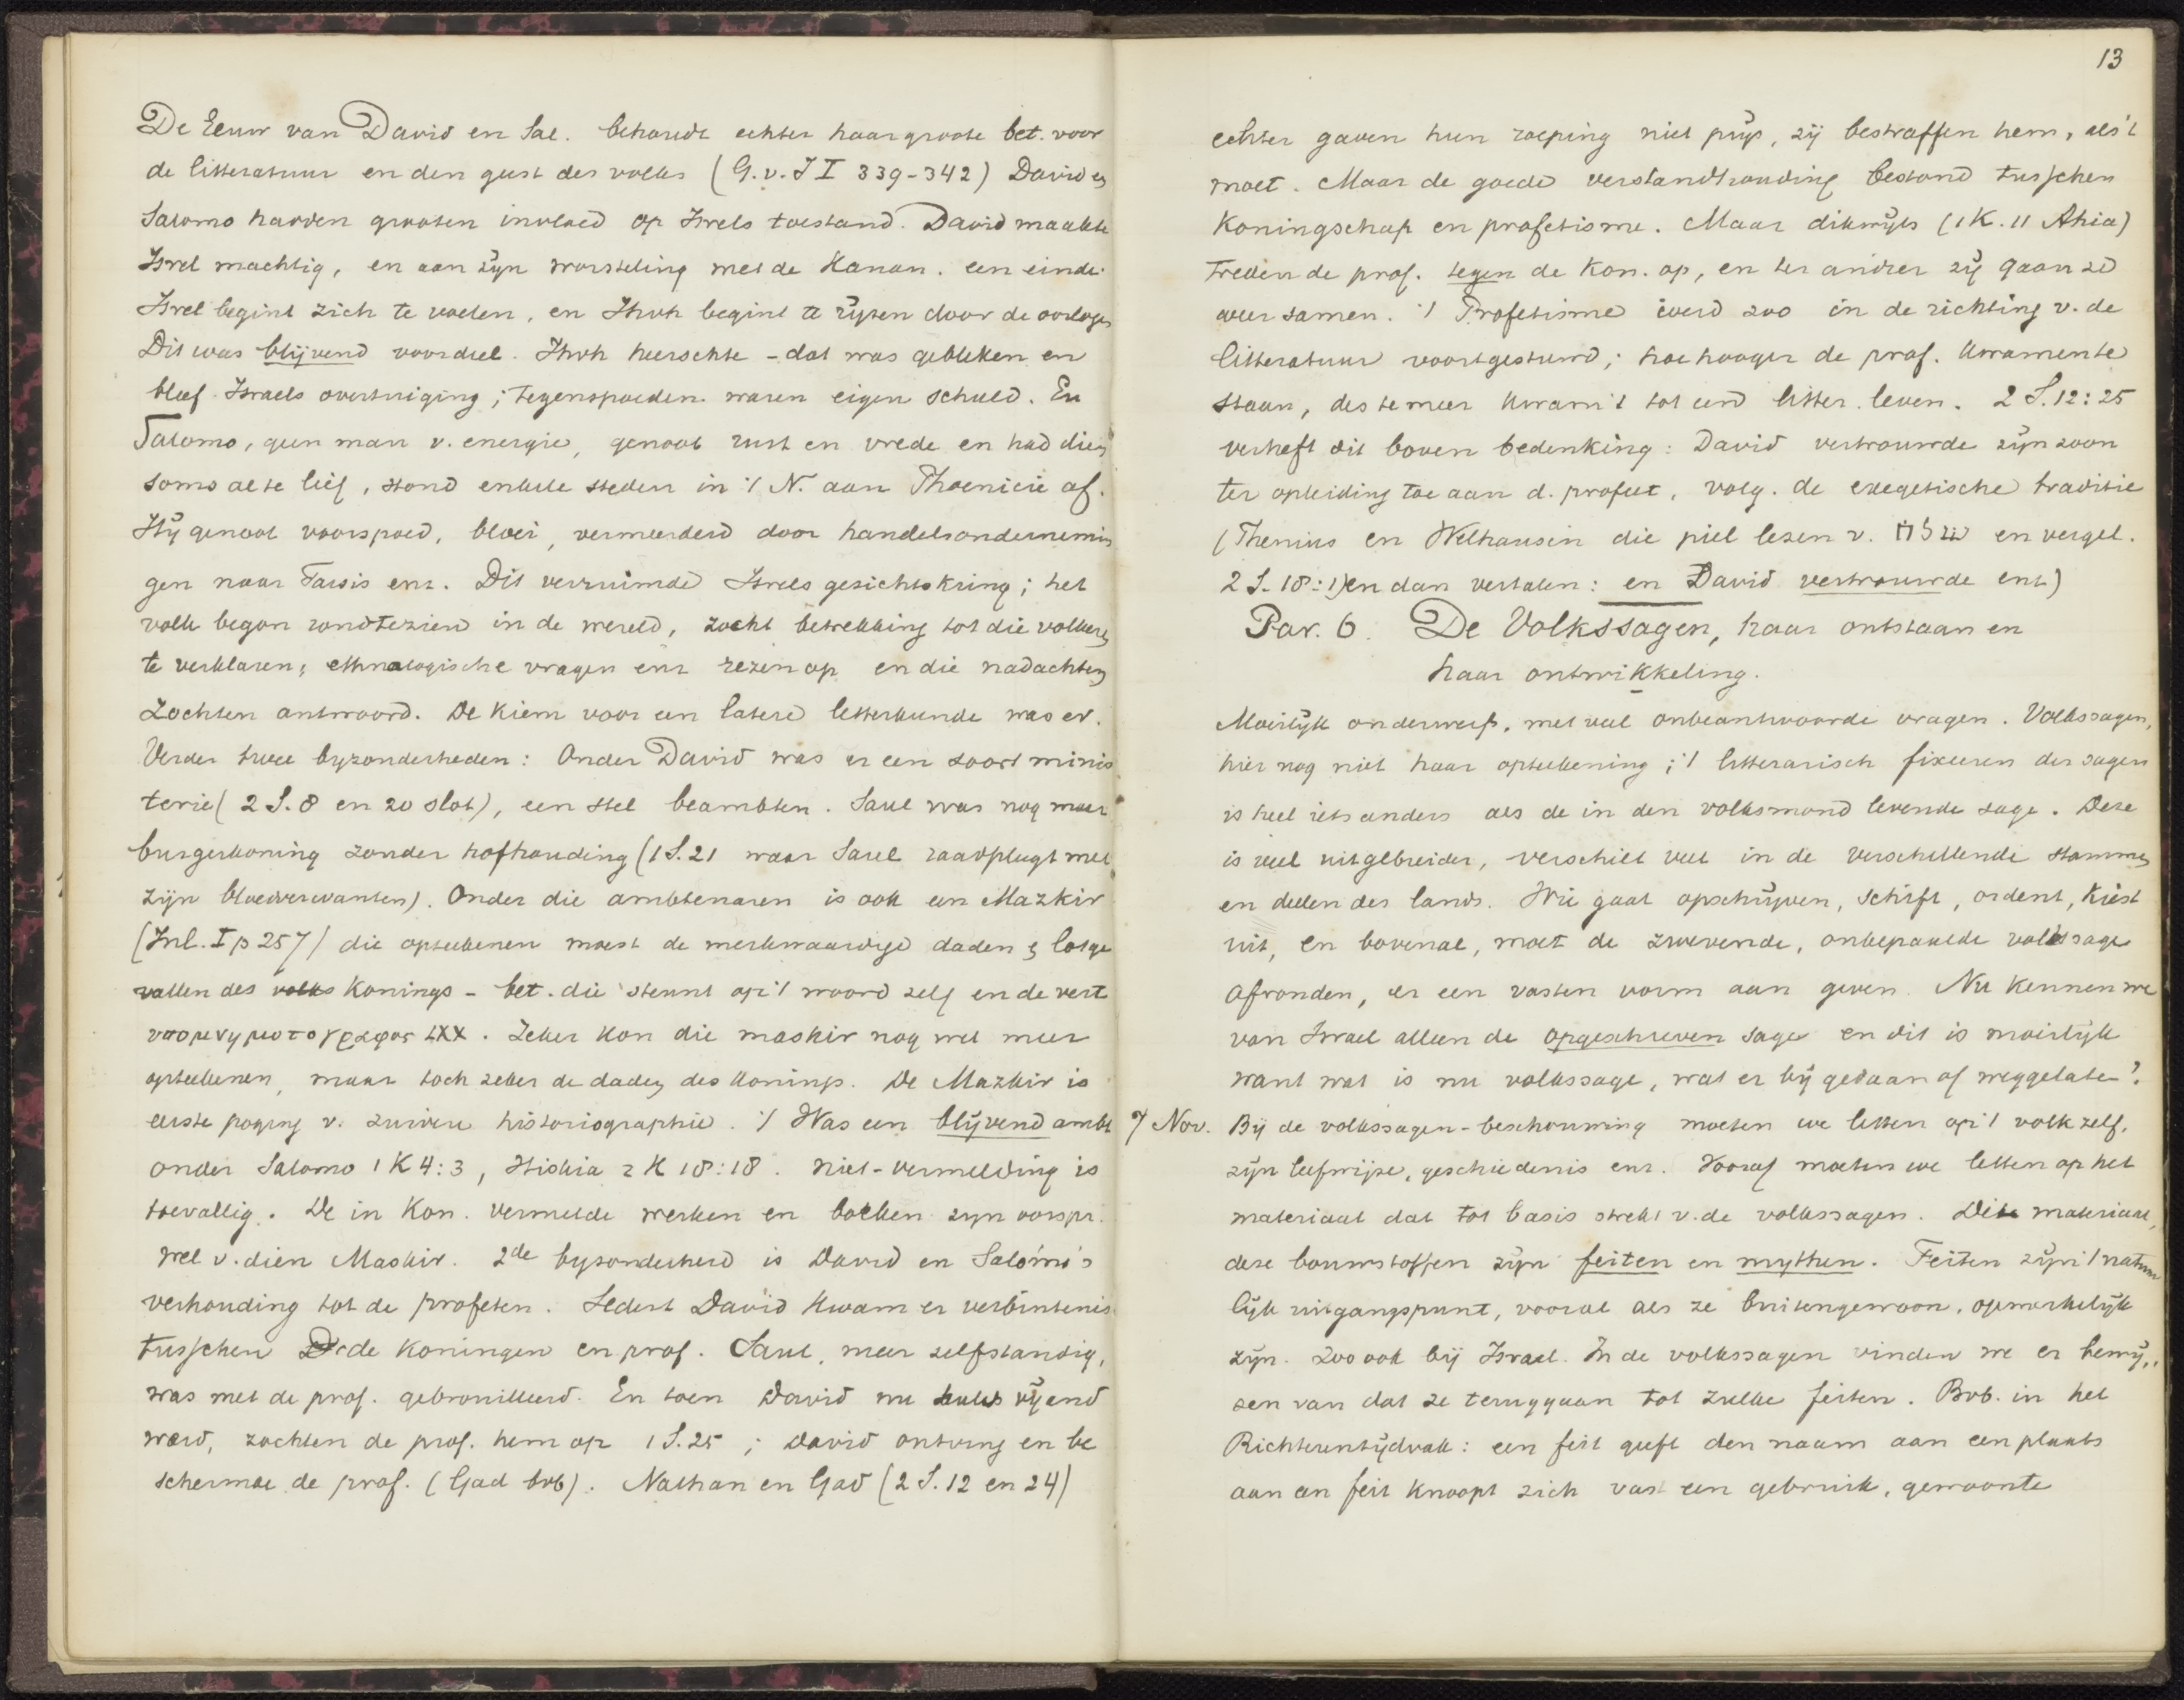 De Eeuw van David en Sal. behoudt echter haar groote bet. voor
de litteratuur en den geest des volks (G.v.I I 339-342) David en
Salomo hadden grooten invloed op Isrels toestand. David maakte
Isrel machtig, en aan zijn worsteling met de Kanan. een einde.
Isrel begint zich te voelen, en Jhvh begint te rijzen door de oorlogen
Dit was blijvend voordeel. Jhvh heerschte - dat was gebleken en
bleef Israels overtuiging; tegenspoeden waren eigen schuld. En
Salomo, geen man v. energie, genoot rust en vrede en had dien
soms al te lief, stond enkele steden in 't N. aan Phoenicie af.
Hij genoot voorspoed, bloei, vermeerderd door handelsondernemin
gen naar Tarsis enz. Dit verruimde Isrels gezichtskring; het
volk begon rondtezien in de wereld, zocht betrekking tot die volkeren
te verklaren; ethnologische vragen enz rezen op en die nadachten
zochten antwoord. De kiem voor een latere letterkunde was er.
Verder twee byzonderheden: Onder David was er een soort minis
terie (2 S. 8 en 20 slot), een stel beambten. Saul was nog meer
burgerkoning zonder hofhouding (1 S. 21 waar Saul raadpleegt met
zijn bloedverwanten). Onder die ambtenaren is ook een Mazkir
(Inl. I p 257) die opteekenen moest de merkwaardige daden & lotge
vallen des volks Konings - bet. die steunt op 't woord zelf en de vert
υπομνηματογραφος LXX. Zeker kon die maskir nog wel meer
opteekenen, maar toch zeker de daden des Konings. De Mazkir is
eerste poging v. zuivere historiographie. 't Was een blijvend ambt
onder Salomo 1 K 4:3, Hiskia 2 K 18:18. niet-vermelding is
toevallig. De in Kon. vermelde werken en boeken zyn oorspr.
wel v. dien Maskir. 2de byzonderheid is David en Salomo's
verhouding tot de profeten. Sedert David kwam er verbintenis
tusschen de Koningen en prof. Saul, meer zelfstandig,
was met de prof. gebrouilleerd. En toen David nu Sauls vijand
werd, zochten de prof. hem op 1 S. 25; David ontving en be
schermde de prof. (Gad bvb). Nathan en Gad (2 S. 12 en 24)
13
echter gaven hun roeping niet prijs, zij bestraffen hem, als 't
moet. Maar de goede verstandhouding bestond tusschen
Koningschap en profetisme. Maar dikwijls (1 K. 11 Ahia)
treden de prof. tegen de Kon. op, en ter andrer zij gaan ze
weer samen. 't Profetisme werd zoo in de richting v. de
litteratuur voortgestuwd; hoe hooger de prof. kwamente
staan, des te meer kwam 't tot eene litter. leven. 2 S. 12:25
verheft dit boven bedenking: David vertrouwde zijn zoon
ter opleiding toe aan d. profeet, volg. de exegetische traditie
(Thenius en Welhausen die piel lezen v. שלח en vergel.
2 S. 18:1) en dan vertalen: en David vertrouwde enz)
Par. 6. De Volkssagen, haar ontstaan en
haar ontwikkeling.
Moeilijk onderwerp, met veel onbeantwoorde vragen. Volkssagen,
hier nog niet haar opteekening; 't litterarisch fixeeren der sagen
is heel iets anders als de in den volksmond levende sage. Deze
is veel uitgebreider, verschilt veel in de verschillende stammen
en deelen des lands. Wie gaat opschrijven, schift, ordent, kiest
uit, en bovenal, moet de zwevende, onbepaalde volkssage
afronden, er een vasten vorm aan geven. Nu kennen we
van Israel alleen de opgeschreven sage en dit is moeilijk
want wat is nu volkssage, wat er bij gedaan of weggelaten?
7 Nov. Bij de volkssagen-beschouwing moeten we letten op 't volk zelf,
zijn leefwijze, geschiedenis enz. Vooraf moeten we letten op het
materiaal dat tot basis strekt v. de volkssagen. Dit materiaal,
deze bouwstoffen zijn feiten en mythen. Feiten zijn 't natuur
lijk uitgangspunt, vooral als ze buitengewoon, opmerkelijk
zijn. Zoo ook bij Israel. In de volkssagen vinden we er bewij„
zen van dat ze teruggaan tot zulke feiten. Bvb. in het
Richterentijdvak: een feit geeft den naam aan een plaats
aan een feit knoopt zich vast een gebruik, gewoonte